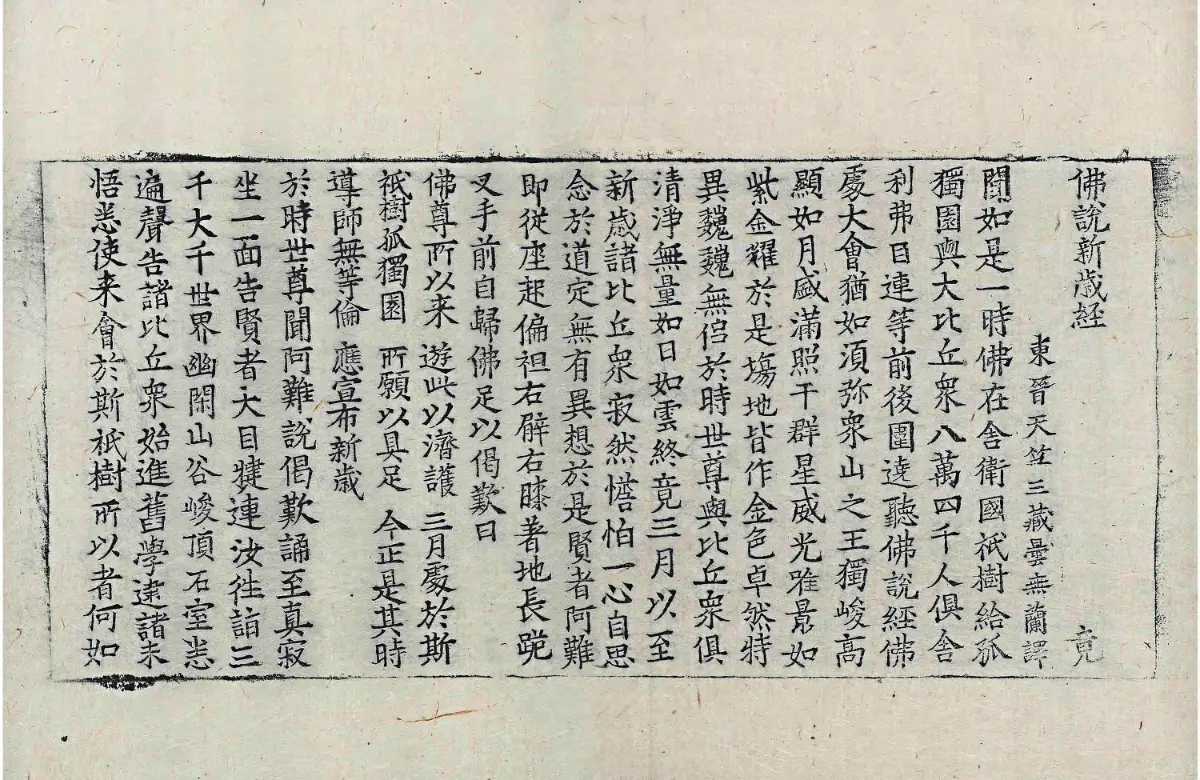 佛說新歲經 竟
東晉天竺三藏曇無蘭譯
聞如是一時佛在舍衛國祇樹給孤
獨園與大比丘衆八萬四千人俱舍
利弗目連等前後圍遶聽佛說經佛
處大會猶如須弥衆山之王獨峻高
顯如月盛滿照于群星威光唯景如
紫金耀於是塲地皆作金色卓然特
異巍巍無侣於時世尊與比丘衆俱
清淨無量如日如雲終竟三月以至
新歲諸比丘衆寂然憺怕一心自思
念於道定無有異想於是賢者阿難
即從座起偏袒右臂右膝著地長跪
叉手前自歸佛足以偈歎曰
佛尊所以来 遊此以濟護 三月處於斯
祇樹孤獨園 所願以具足 今正是其時
導師無等倫 應宣布新歲
於時世尊聞阿難說偈歎誦至真寂
坐一面告賢者大目揵連汝往詣三
千大千世界幽閑山谷峻頂石室悉
遍聲告諸比丘衆始進舊學逮諸未
悟悉使来會於斯祇樹所以者何如